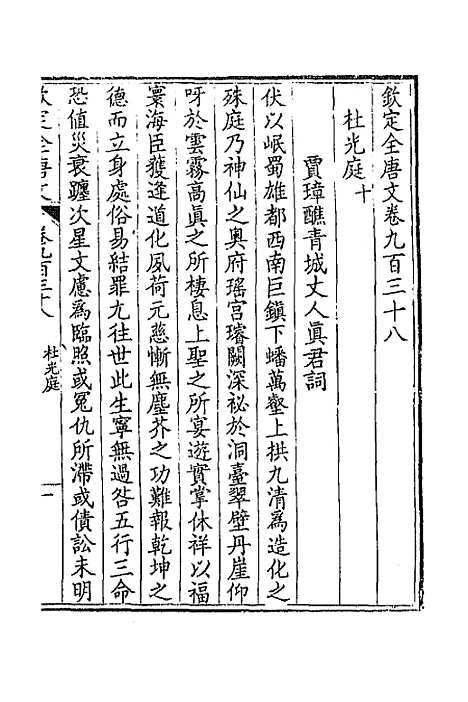 欽定全唐文卷九百三十八
杜光庭十
賈璋醮青城丈人眞君詞
伏以岷蜀雄都西南巨鎭下蟠萬壑上拱九清爲造化之
殊庭乃神仙之奥府瑤宫璿闕深祕於洞臺翠壁丹崖仰
呀於雲霧高眞之所棲息上聖之所宴遊實掌休祥以福
寰海臣獲逢道化夙荷元慈慚無塵芥之功難報乾坤之
德而立身處俗易結罪尤往世此生寧無過咎五行三命
恐值災衰躔次星文慮爲臨照或冤仇所滯或債訟未明
欽定全唐文
卷九百三十八
杜光庭
一